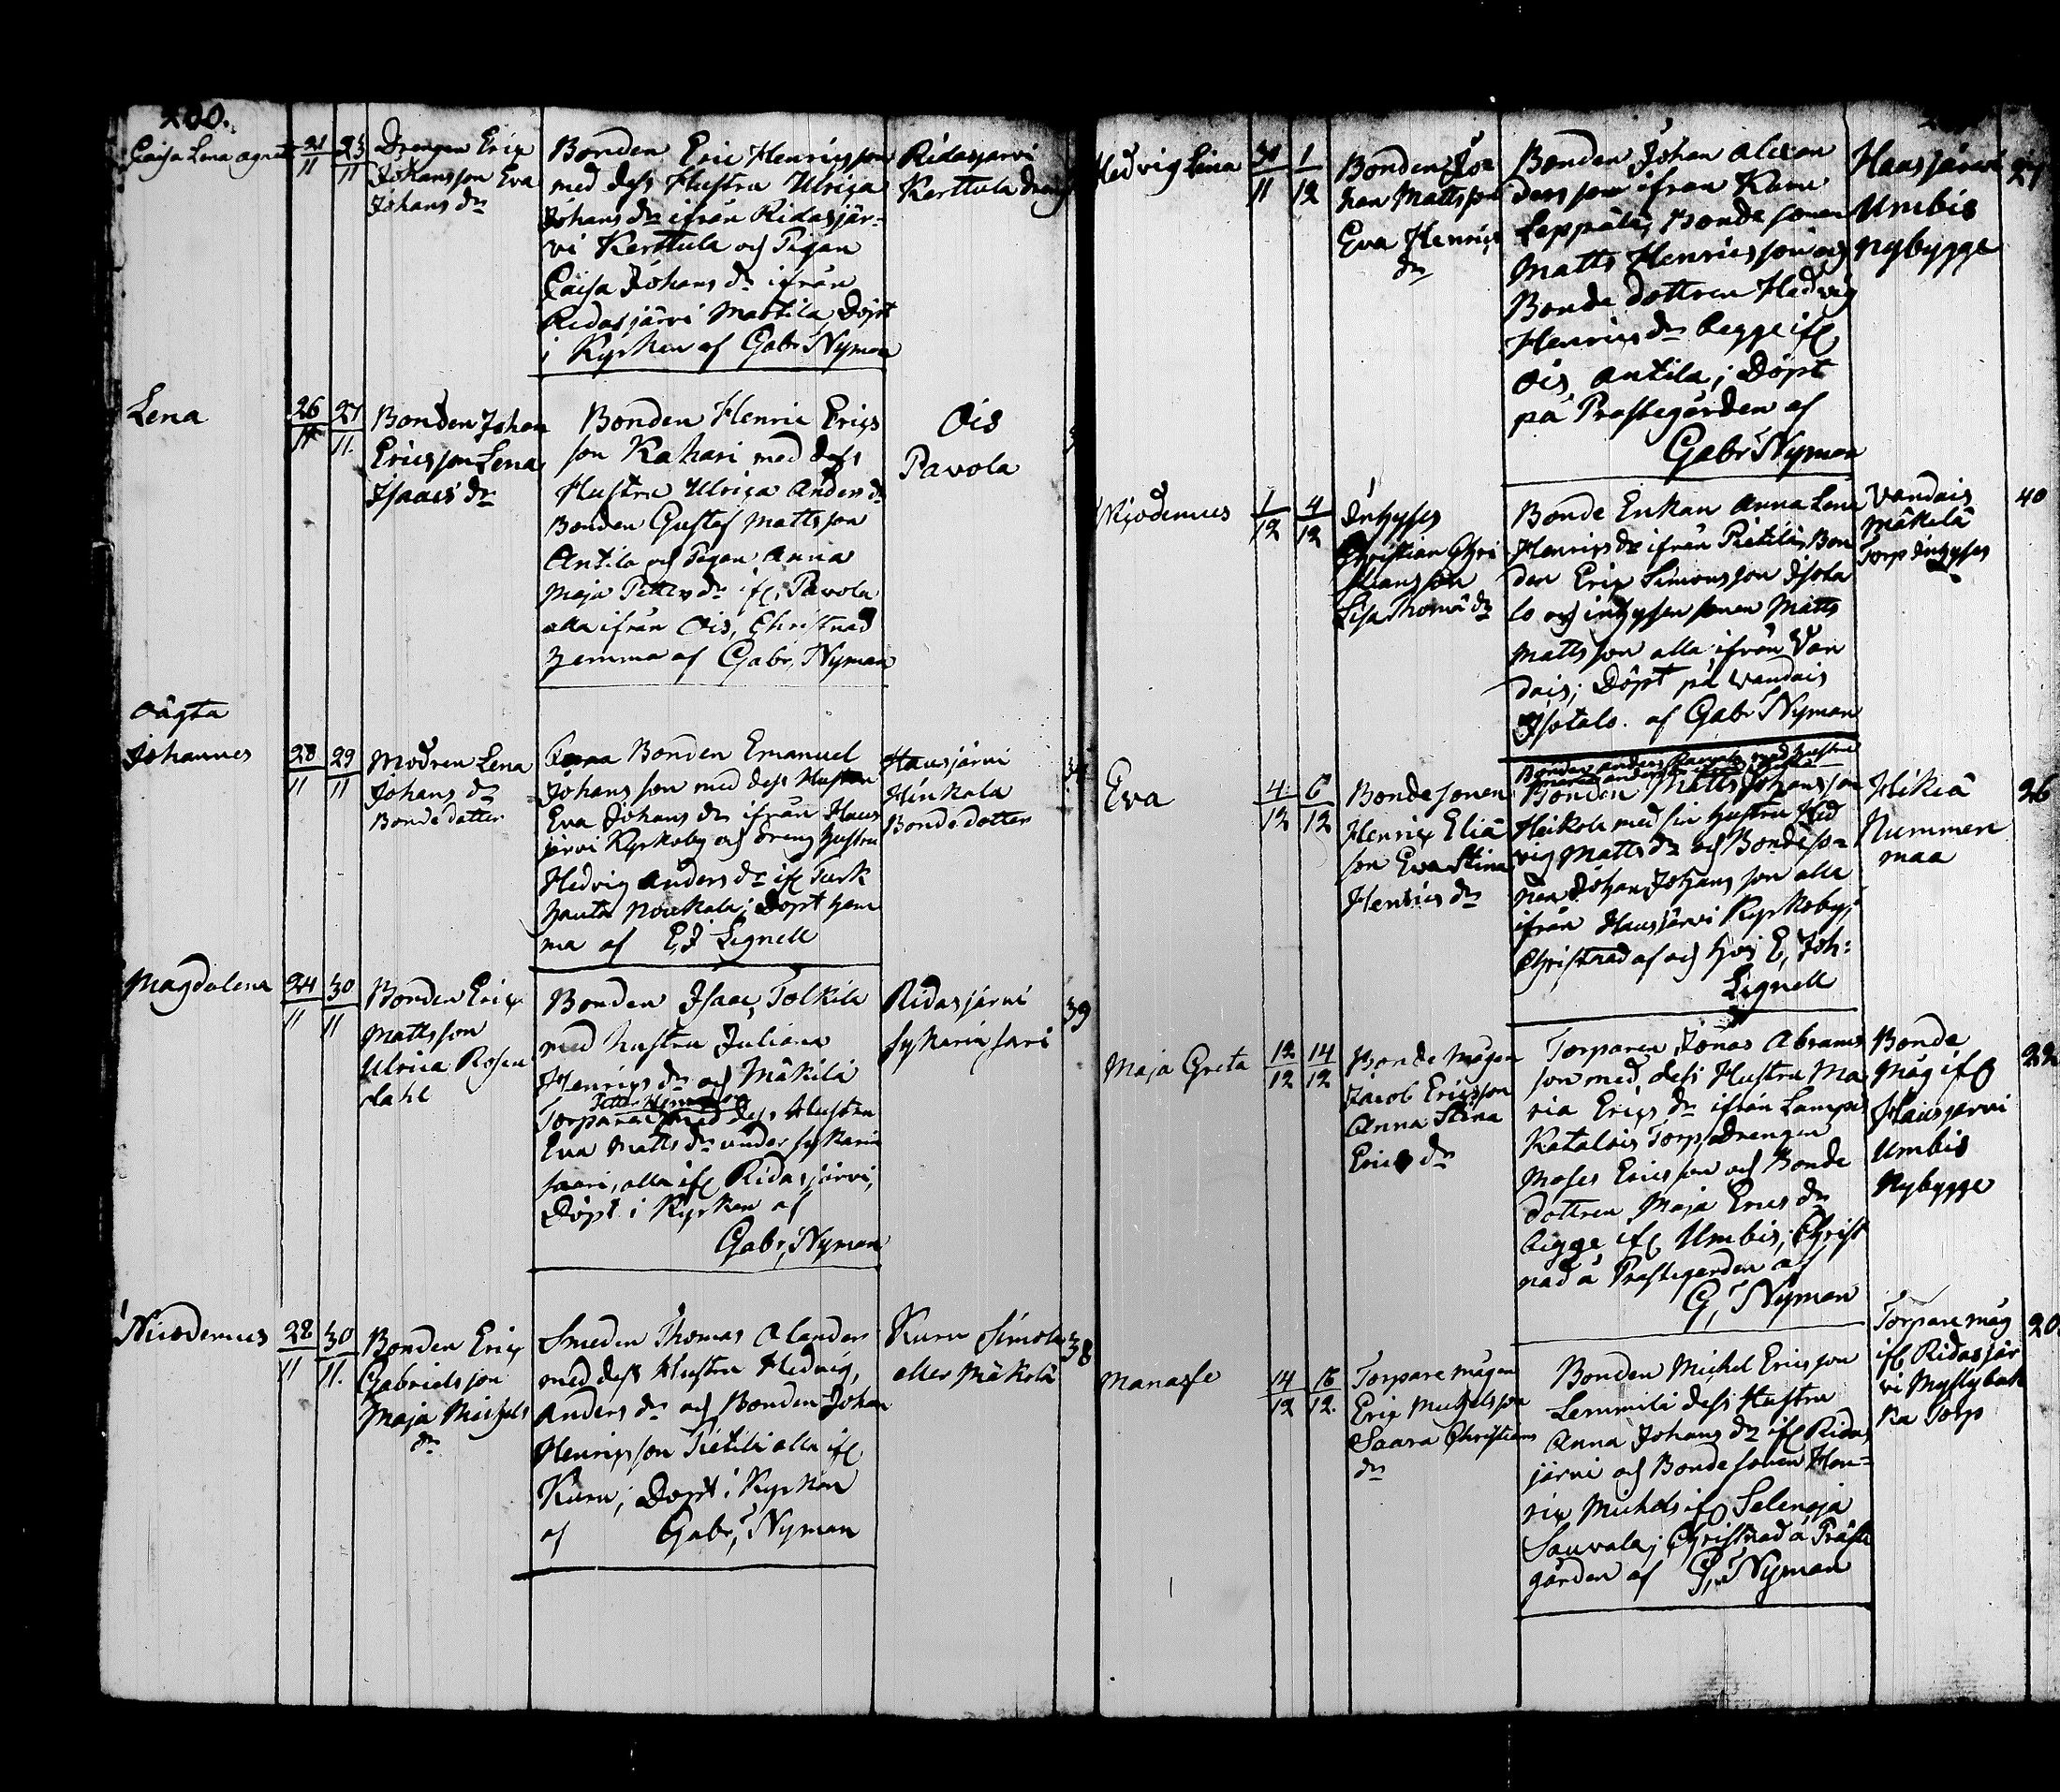 200.
Caisa Lena agneta 21/11 23/11
Drengen Eric
Johansson Eva
Johans dr
Bonden Eric Henricsson
med dess Hustru Ulrica
Johans dr ifrån Ridasjär-
vi Kerttula och Pigan
Caisa Johans dr ifrån
Ridasjärvi Mattila, Döpt
i Kyrkan af Gabr Nyman
Ridasjarvi
Kerttula dräng
Lena 26/11 27/11.
Bonden Johan
Ericsson Lena
Isaacs dr
Bonden Henric Erics
son Kahari med dess
Hustru Ulrica Anders dr
Bonden Gustaf Mattsson
Antila och Pigan Anna
Maja Petters dr if. Pavola
alla ifrån Ois, Christnad
hemma af Gabr. Nyman
Ois
Pavola
oägta
Johannes 28/11 29/11
Modren Lena
Johans dr
Bondedotter
Bonden Emanuel
Johansson med dess Hustru
Eva Johans dr ifrån Haus
järvi Kyrkoby och dreng hustru
Hedvig Anders dr if Turk
hauta Noukala; Döpt hem
ma af E J Lignell
Hausjärvi
Hinkala
Bondedotter
Magdalena 24/11 30/11
Bonden Eric
Mattsson
Ulrica Rosen
dahl
Bonden Isaac Tolkila
med hustru Juliana
Henrics dr och Mäkilä
Torparen med dess Hustru
Eva Matts dr under sykarin
saari, alla if Ridasjärvi,
Döpt i Kyrkan af
Gabr, Nyman
Ridasjärvi
sykarinsari
39
Nicodemus 28/11 30/11.
Bonden Eric
Gabrielsson
Maja Michels
dr
Smeden Thomas Olander
med dess Hustru Hedvig,
Anders dr och Bonden Johan
Henricsson Pietilä alla if
Kuru; Döpt i Kyrkan
af Gabr, Nyman
Kuru Simola
eller Mäkelä
38
Hedvig Lena 30/11 1/12
Bonden Jo
han Mattsson
Eva Henric
dr
Bonden Johan Alexan
dersson ifrån Kuru
Leppälä, Bondesonen
Matts Henricsson och
Bonde dottren Hedvig
Henrics dr begge if
Ois Antila; Döpt
på Prästegården af
Gabr Nyman
Hausjärvi
Umbis
nybygge
27
Nicodemus 1/12 4/12
Inhyses
Christian Chri
stiansson
Lisa Thomä dr
Bonde Enkan Anna Lena
Henrics dr ifrån Pietilä, Bon
den Eric Simonsson Isota
lo och inhyses sonen Matts
Mattsson alla ifrån Van
dais; Döpt på Vandais
Isotalo. af Gabr Nyman
Vandais
Mäkelä
Torp Inhyses
40
Eva 4/12 6/12
Bondesonen
Henric Eliä
son Eva Stina
Henrics dr
Bonden Matts Johansson
Heikola med sin hustru Hed
vig Matts dr och Bondeso-
nen Johan Johansson alla
ifrån Hausjärvi Kyrkoby;
Christnad af och hos E, Joh:
Lignell
Hikiä
Nummen
maa
26
Maja Greta 12/12 14/12
Bonde Mågen
Jacob Ericsson
Anna Stina
Erics dr
Torparen Jonas Abrams
son med dess Hustru Ma
ria Erics dr ifrån Lampis
Katalois Torp, Drengen
Moses Ericsson och Bonde
dottren Maja Erics dr
begge if Umbis; Christ
nad å Prästegården af
G, Nyman
Bonde
Måg if
Hausjärvi
Umbis
Nybygge
22
Manasse 14/12 16/12.
Torpare mågen
Eric Michelsson
Saara Christians
dr
Bonden Michel Ericsson
Lemmilä dess Hustru
Anna Johans dr if Ridas
järvi och Bondesonen Hen-
ric Michels if Salenoja
Sauvala; Christnad å Präste
gården af G, Nyman
Torpare måg
if Ridasjär
vi Myllylak
ka Torp
20.